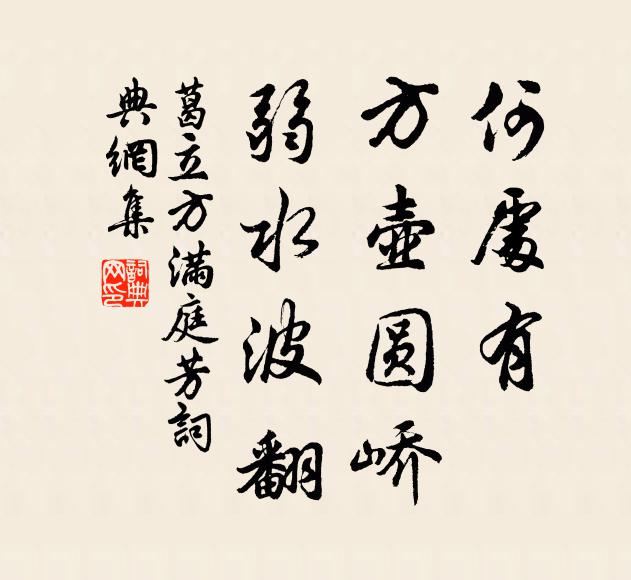 何處有
方壺圆嶠
弱水波翻
葛立方滿庭芳詞
典網集
詞典
网印